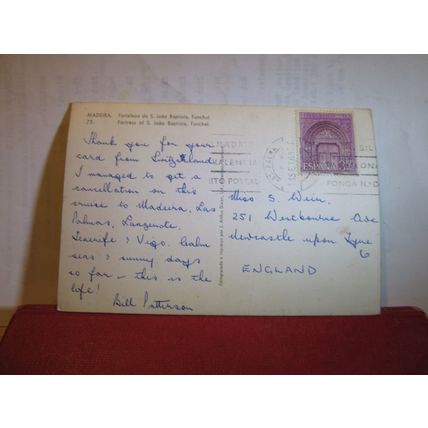 MADEIRA. Fortaleza de S. João Baptista, Funchal.
75. Fortress of S. João Baptista, Funchal.
Thank you for your
card from Switzerland
I managed to get a
cancellation on this
cruise to Madeira, Las
Palmas, Lanzarote,
Tenerife & Vigo. Calm
seas & sunny days
so far – this is the
life!
Bill Patterson
MADRID
VALENCIA
POSTAL
ESPAÑA
PONGA N.º D
Miss S. Weir,
251 Westbourne Ave
Newcastle upon Tyne
6
ENGLAND